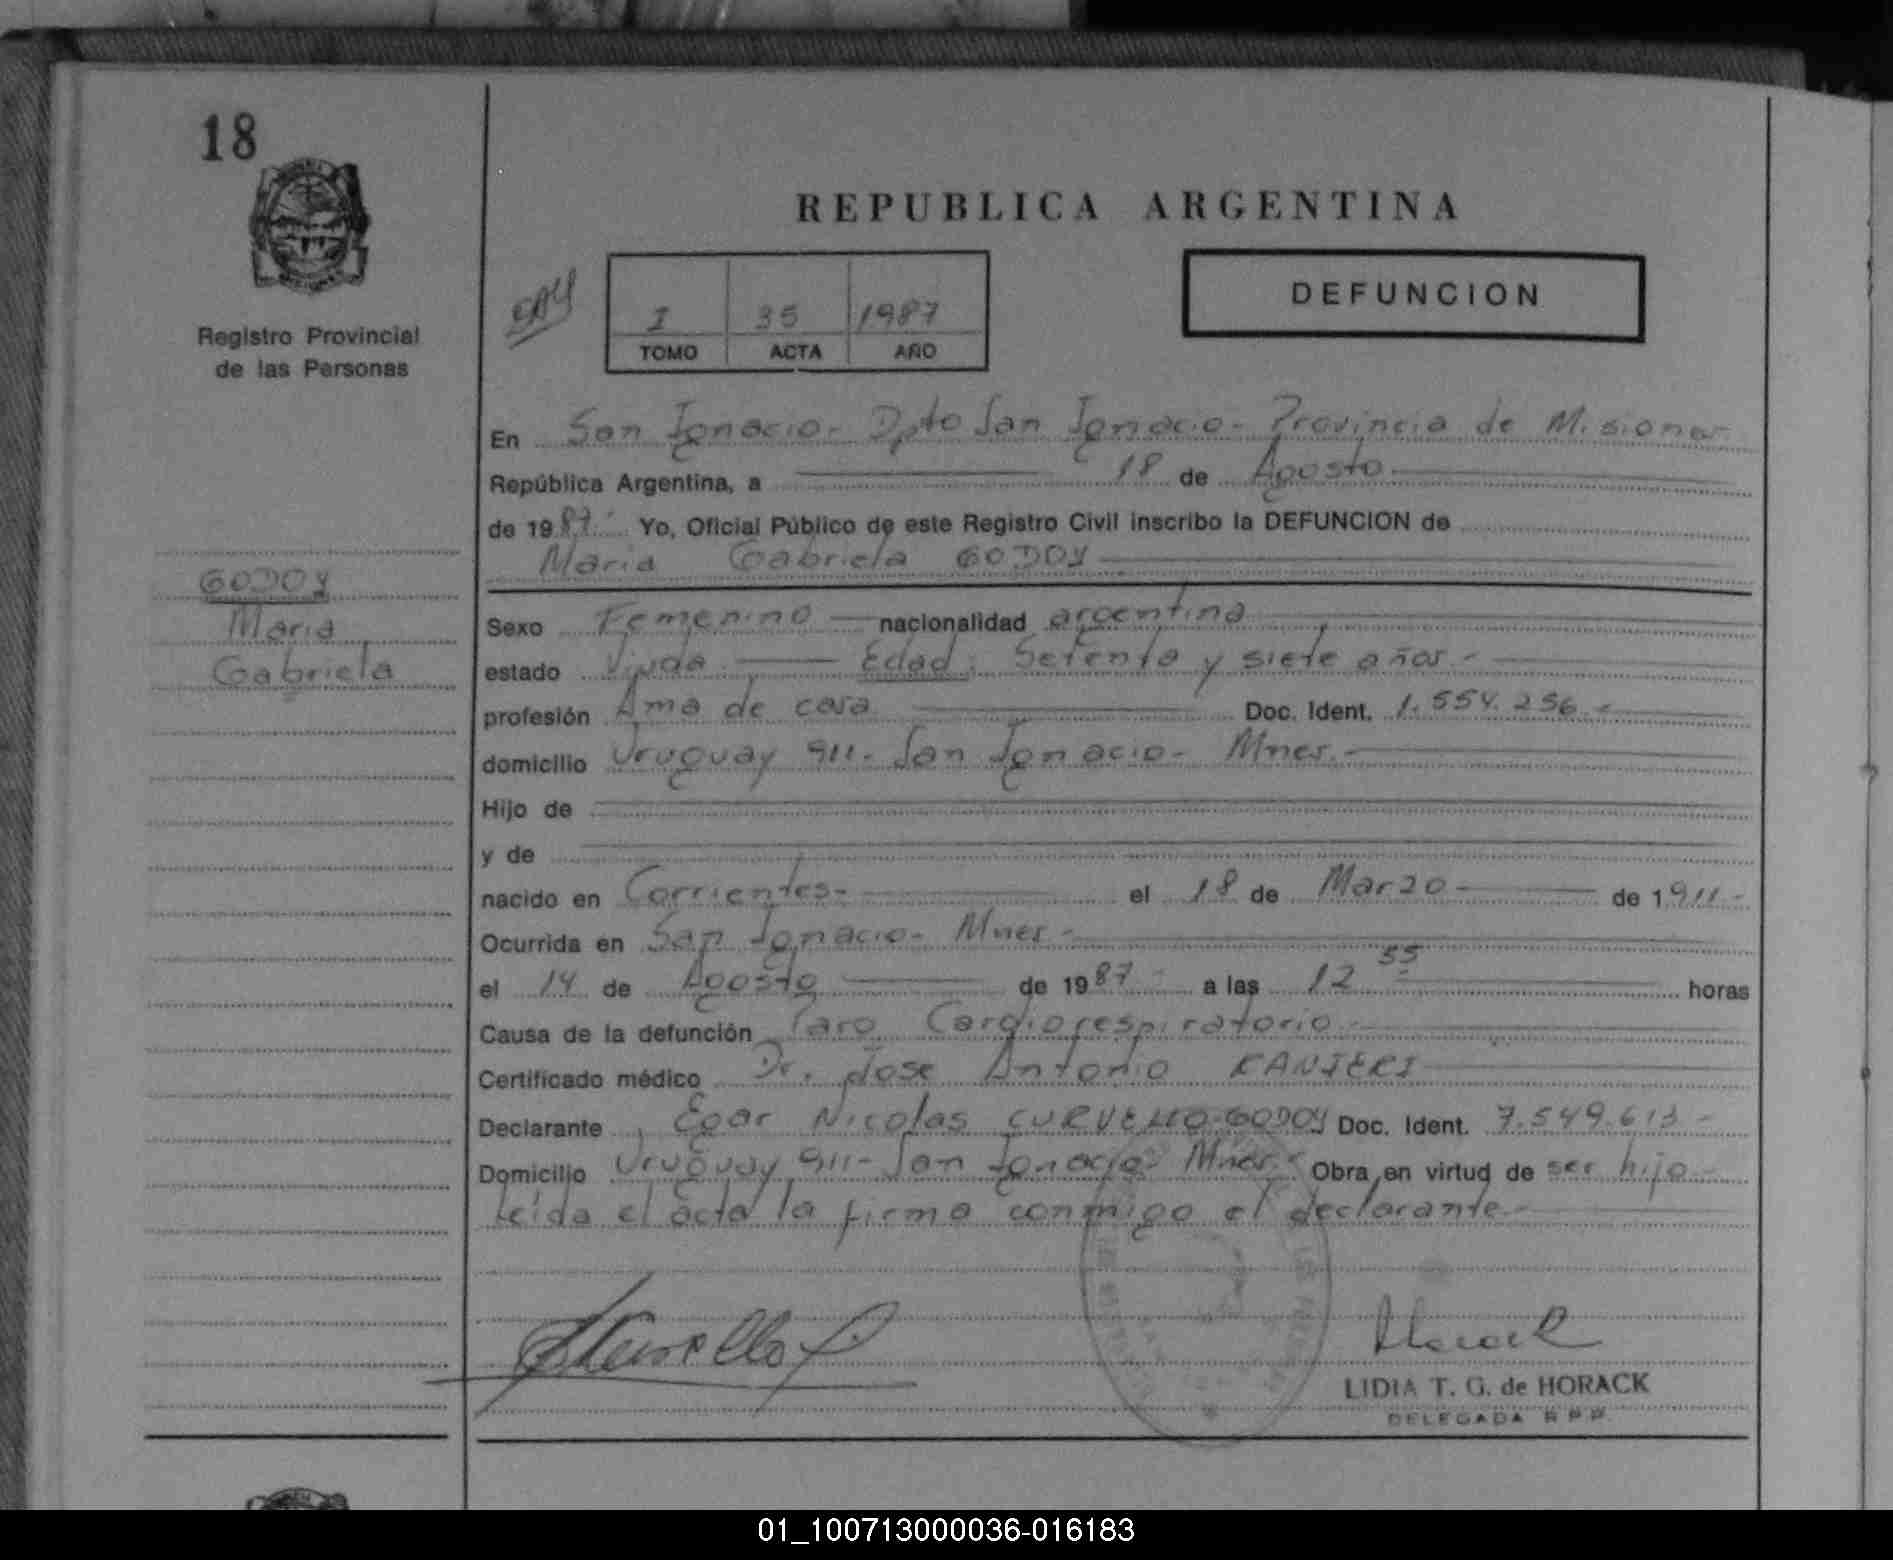 18
Registro Provincial
de las Personas
REPUBLICA ARGENTINA
I 35 1987
TOMO ACTA AÑO
DEFUNCION
GODOY
Maria
Gabriela
En San Ignacio- Dpto San Ignacio- Provincia de Misiones-
República Argentina, a 18 de Agosto
de 1987.- Yo, Oficial Público de este Registro Civil inscribo la DEFUNCION de
Maria Gabriela GODOY
Sexo Femenino nacionalidad argentina
estado Viuda. Edad: Setenta y siete años.-
profesión Ama de casa Doc. Ident. 1.554.256.-
domicilio Uruguay 911.- San Ignacio- Mnes.-
Hijo de
y de
nacido en Corrientes.- el 18 de Marzo- de 1911.-
Ocurrida en San Ignacio- Mnes.-
el 14 de Agosto de 1987.- a las 12 55 horas
Causa de la defunción Paro Cardiorespiratorio.-
Certificado médico Dr. Jose Antonio
Declarante Egar Nicolas CURVELLO-GODOY Doc. Ident. 7.549.613.-
Domicilio Uruguay 911- San Ignacio- Mnes.- Obra en virtud de ser hijo.-
Leida el acta la firma conmigo el declarante.-
LIDIA T. G. de HORACK
DELEGADA R P P.
01_100713000036-016183